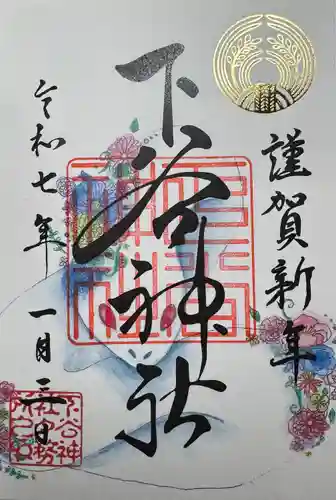 謹賀新年
下谷神社
令和七年一月三日
下谷神社